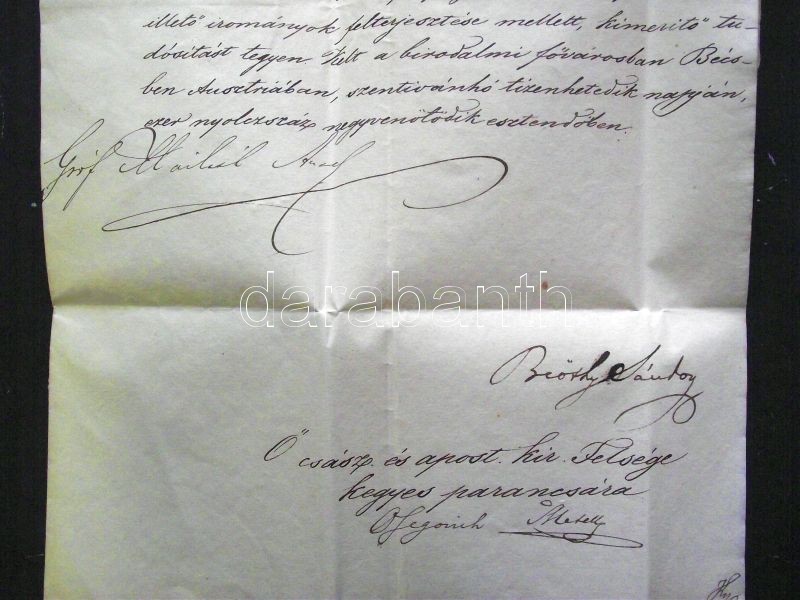 illető irományok felterjesztése mellett, kimeritő tu-
dósitást tegyen. Kelt a birodalmi fővárosban Bécs-
ben Austriában, szentivánhó tizenhetedik napján,
ezer nyolczszáz negyvenötödik esztendőben.
Gróf Mailáth Antal
darabanth
Beöthy Sándor
Ő csász. és apost. kir. Felsége
kegyes parancsára
Ofegovich Metell